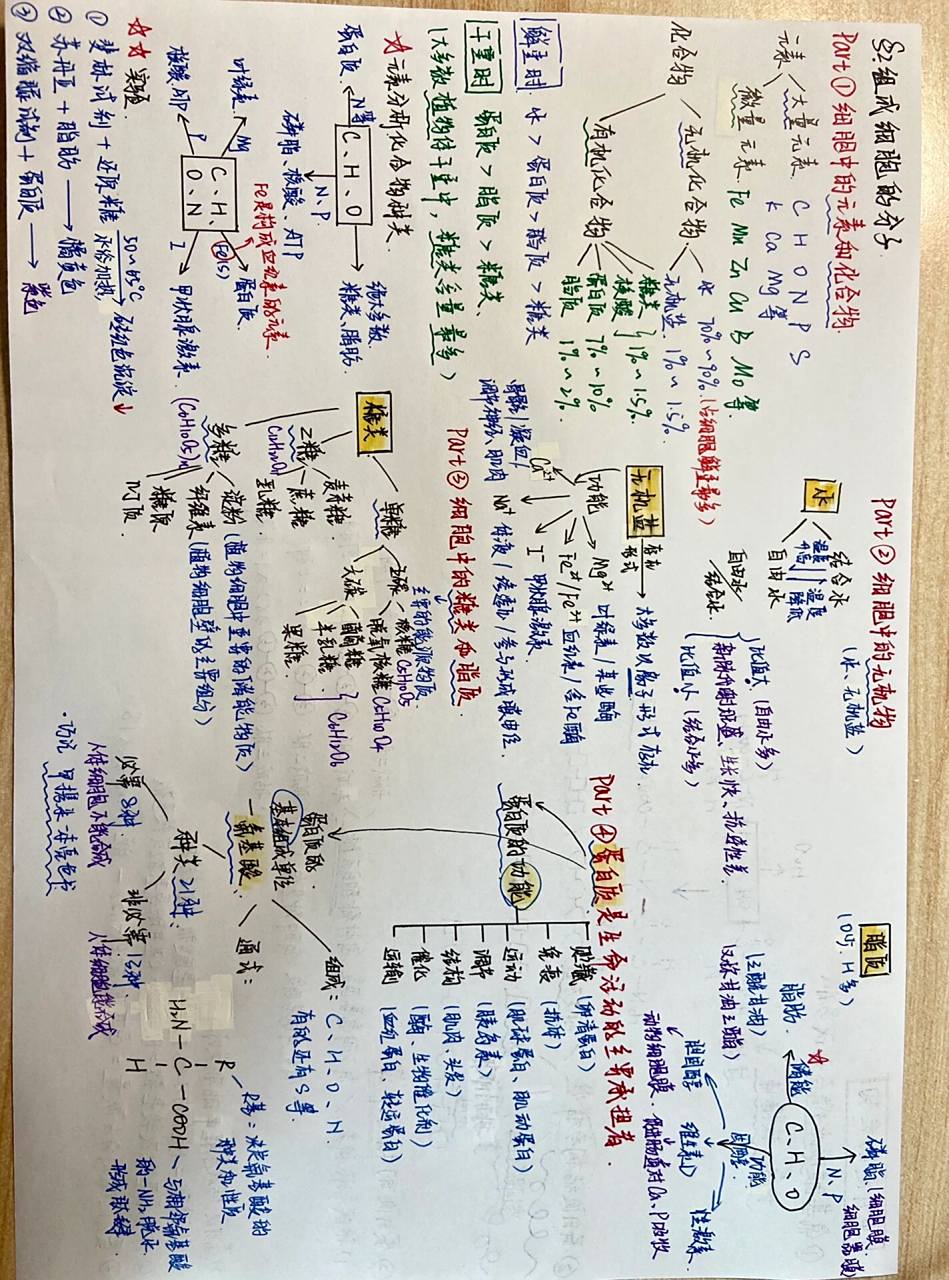 S2 组成细胞的分子
Part① 细胞中的元素和化合物
元素
大量元素. C H O N P S
K Ca Mg等
微量元素. Fe Mn Zn Cu B Mo等.
化合物
无机化合物
水 70%~90% (占细胞鲜重最多)
无机盐. 1%~1.5%
有机化合物
糖类
核酸 } 1%~1.5%
蛋白质 7%~10%
脂质 1%~2%
鲜重时 水>蛋白质>脂质>糖类
干重时 蛋白质>脂质>糖类.
(大多数植物体干重中, 糖类含量最多)
☆元素分析化合物种类.
C、H、O
糖类、脂肪
蛋白质.
N、P
磷脂、核酸、ATP
C、H、
O、N
Mg
叶绿素.
P
核酸、ATP
Fe(S)
蛋白质.
Fe是构成血红素的元素.
I
甲状腺激素.
☆☆ 实验.
① 斐林试剂+还原糖 50~65°C 水浴加热 砖红色沉淀↓
② 苏丹Ⅲ+脂肪→橘黄色
③ 双缩脲试剂+蛋白质→紫色
Part② 细胞中的无机物
(水、无机盐)
水
结合水
温度升高
温度降低
自由水
自由水/结合水
比值大 (自由水多)
新陈代谢旺盛、生长快、抗逆性差
比值小 (结合水多)
无机盐
存在形式 大多数以离子形式存在.
功能
Mg²⁺ 叶绿素/某些酶
Fe²⁺/Fe³⁺ 血红素/含Fe酶
I⁻ 甲状腺激素.
Ca²⁺
骨骼/凝血/
调节神经、肌肉
Part③ 细胞中的糖类和脂质.
主要的能源物质
糖类
单糖
五碳
核糖 C₅H₁₀O₅
脱氧核糖 C₅H₁₀O₄
六碳
半乳糖
果糖.
} C₆H₁₂O₆
二糖
C₁₂H₂₂O₁₁
麦芽糖.
蔗糖
乳糖.
多糖
(C₆H₁₀O₅)n
淀粉 (植物细胞中重要的储能物质)
纤维素 (植物细胞壁的主要组分)
糖原
几丁质.
脂质
(O少, H多)
C、H、O
N、P
磷脂 (细胞膜, 细胞器膜)
☆储能
脂肪.
(三酰甘油)
(又称甘油三酯)
功能
固醇
胆固醇
动物细胞膜.
维生素D
促进肠道对Ca、P吸收
性激素.
Part④ 蛋白质是生命活动的主要承担者.
蛋白质的功能
贮藏 (卵清蛋白)
免疫 (抗体)
运动 (肌球蛋白、肌动蛋白)
调节 (胰岛素)
结构 (肌肉、头发)
催化 (酶、生物催化剂)
运输 (血红蛋白、转运蛋白)
蛋白质的
基本组成单位
—氨基酸.
组成: C、H、O、N.
有的还有S等.
种类 21种:
必需 8种.
人体细胞不能合成
非必需 13种.
人体细胞能合成
· 巧记 甲携来一本亮色书
通式:
R
H₂N—C—COOH
H
R基: 决定氨基酸的
种类和性质
与相邻氨基酸
的—NH₂脱水
形成肽键